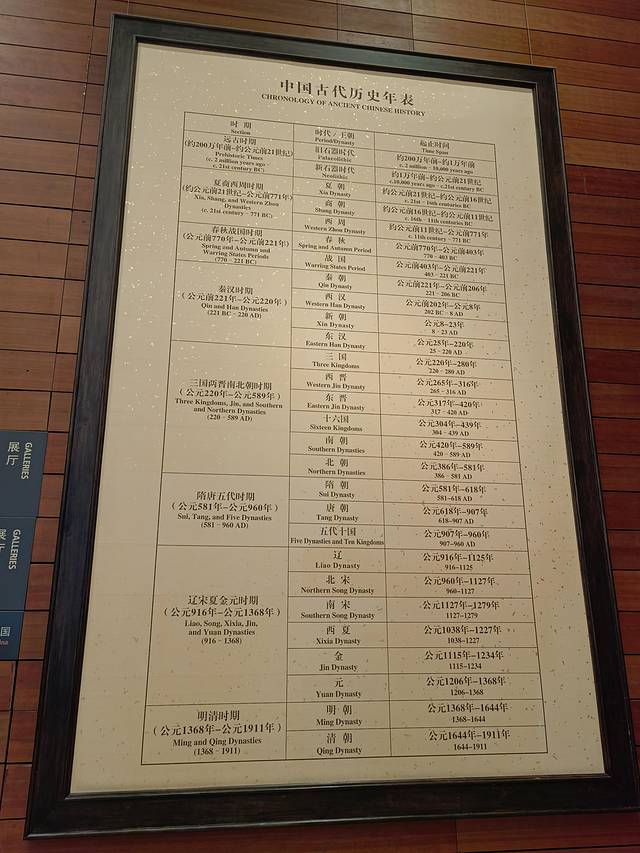 中国古代历史年表
CHRONOLOGY OF ANCIENT CHINESE HISTORY
时 期
Section
时代／王朝
Period/Dynasty
起止时间
Time Span
远古时期
(约200万年前–约公元前21世纪)
Prehistoric Times
(c. 2 million years ago –
c. 21st century BC)
旧石器时代
Palaeolithic
约200万年前–约1万年前
c. 2 million – 10,000 years ago
新石器时代
Neolithic
约1万年前–约公元前21世纪
c.10,000 years ago – c.21st century BC
夏商西周时期
(约公元前21世纪–公元前771年)
Xia, Shang, and Western Zhou
Dynasties
(c. 21st century – 771 BC)
夏 朝
Xia Dynasty
约公元前21世纪–约公元前16世纪
c. 21st – 16th centuries BC
商 朝
Shang Dynasty
约公元前16世纪–约公元前11世纪
c. 16th – 11th centuries BC
西 周
Western Zhou Dynasty
约公元前11世纪–公元前771年
c. 11th century – 771 BC
春秋战国时期
(公元前770年–公元前221年)
Spring and Autumn and
Warring States Periods
(770 – 221 BC)
春 秋
Spring and Autumn Period
公元前770年–公元前403年
770 – 403 BC
战 国
Warring States Period
公元前403年–公元前221年
403 – 221 BC
秦汉时期
(公元前221年–公元220年)
Qin and Han Dynasties
(221 BC – 220 AD)
秦 朝
Qin Dynasty
公元前221年–公元前206年
221 – 206 BC
西 汉
Western Han Dynasty
公元前202年–公元8年
202 BC – 8 AD
新 朝
Xin Dynasty
公元8–23年
8 – 23 AD
东 汉
Eastern Han Dynasty
公元25年–220年
25 – 220 AD
三国两晋南北朝时期
(公元220年–公元589年)
Three Kingdoms, Jin, and Southern
and Northern Dynasties
(220 – 589 AD)
三 国
Three Kingdoms
公元220年–280年
220 – 280 AD
西 晋
Western Jin Dynasty
公元265年–316年
265 – 316 AD
东 晋
Eastern Jin Dynasty
公元317年–420年
317 – 420 AD
十六国
Sixteen Kingdoms
公元304年–439年
304 – 439 AD
南 朝
Southern Dynasties
公元420年–589年
420 – 589 AD
北 朝
Northern Dynasties
公元386年–581年
386 – 581 AD
隋唐五代时期
(公元581年–公元960年)
Sui, Tang, and Five Dynasties
(581 – 960 AD)
隋 朝
Sui Dynasty
公元581年–618年
581–618 AD
唐 朝
Tang Dynasty
公元618年–907年
618–907 AD
五代十国
Five Dynasties and Ten Kingdoms
公元907年–960年
907–960 AD
辽宋夏金元时期
(公元916年–公元1368年)
Liao, Song, Xixia, Jin,
and Yuan Dynasties
(916 – 1368)
辽
Liao Dynasty
公元916年–1125年
916–1125
北 宋
Northern Song Dynasty
公元960年–1127年
960–1127
南 宋
Southern Song Dynasty
公元1127年–1279年
1127–1279
西 夏
Xixia Dynasty
公元1038年–1227年
1038–1227
金
Jin Dynasty
公元1115年–1234年
1115–1234
元
Yuan Dynasty
公元1206年–1368年
1206–1368
明清时期
(公元1368年–公元1911年)
Ming and Qing Dynasties
(1368 – 1911)
明 朝
Ming Dynasty
公元1368年–1644年
1368–1644
清 朝
Qing Dynasty
公元1644年–1911年
1644–1911
展厅
GALLERIES
展厅
GALLERIES
国